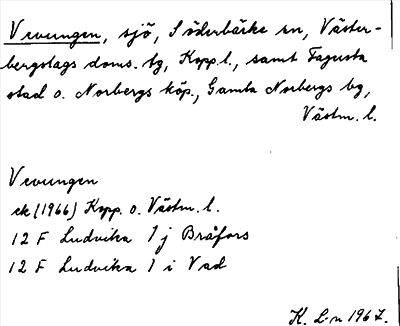 Vrvungen, sjö, Söderbärke sn, Väster-
bergslags doms. bg, Kopp.l., samt Fagersta
stad o. Norbergs köp., Gamla Norbergs bg,
Västm. l.
Vrvungen
ek (1966) Kopp. o. Västm. l.
12 F Ludvika 1 j Bråfors
12 F Ludvika 1 i Vad
K. L-n 1967.